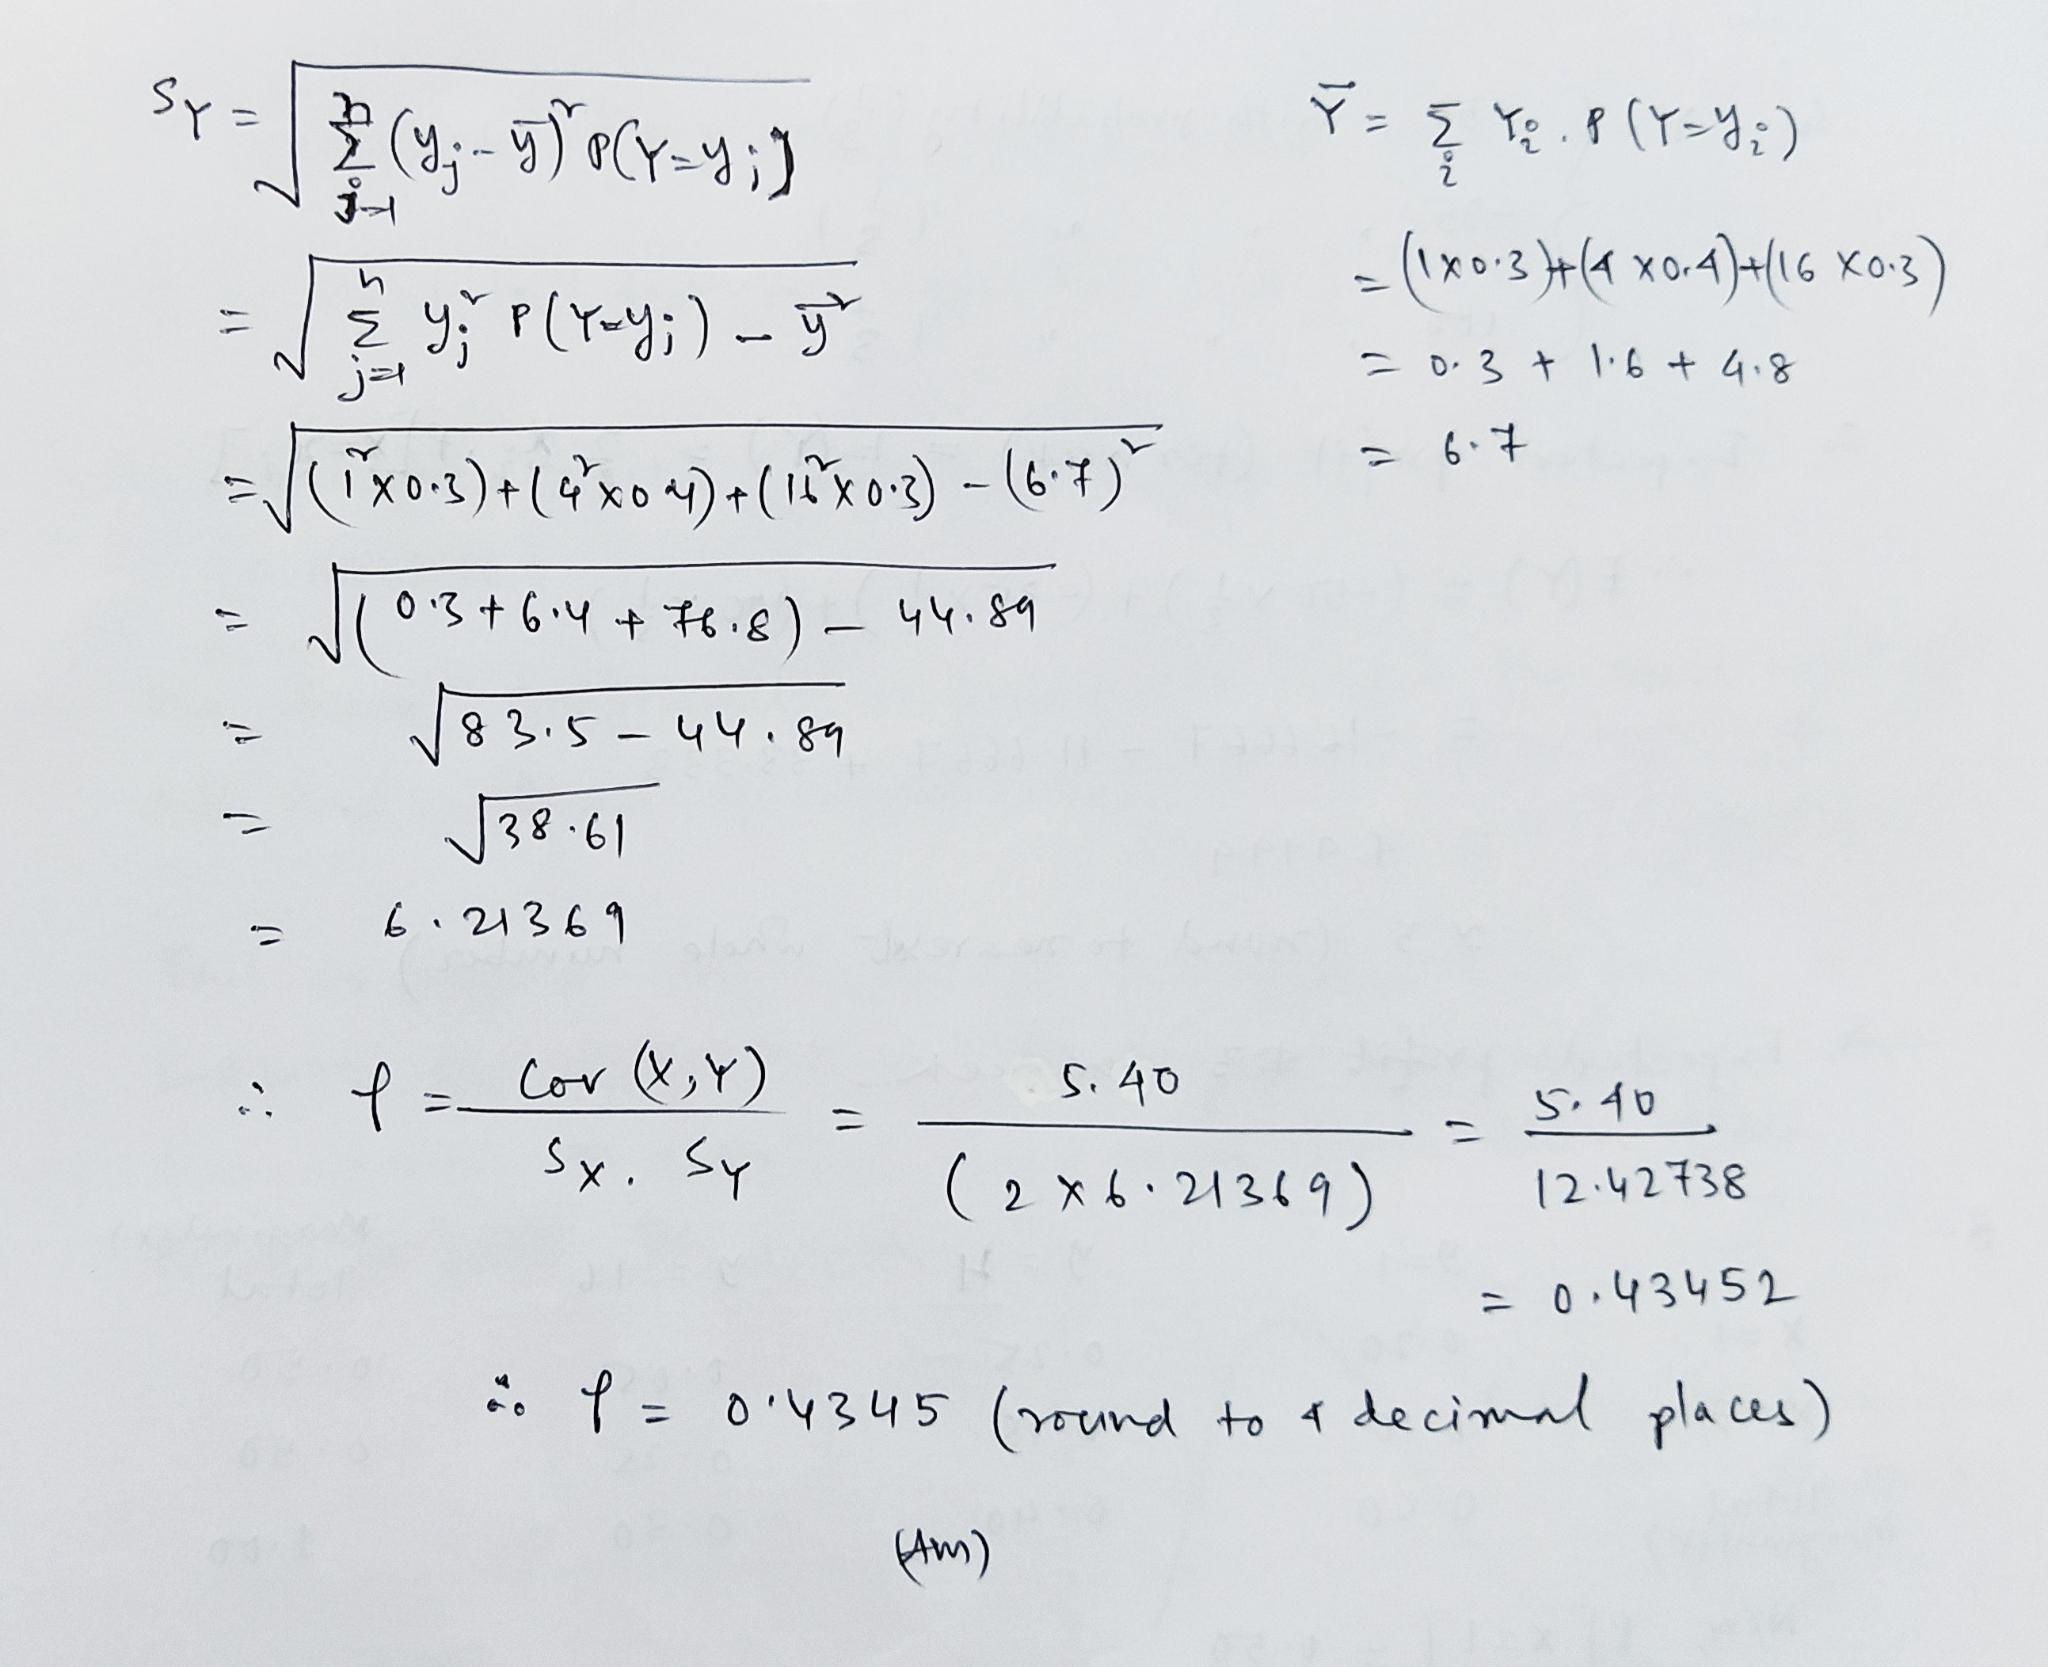 S_Y = √( Σ_{j=1}^{n} (y_j - ȳ)² P(Y=y_j) )
= √( Σ_{j=1}^{n} y_j² P(Y=y_j) - ȳ² )
= √( (1²×0.3)+(4²×0.4)+(16²×0.3) - (6.7)² )
= √( (0.3+6.4+76.8) - 44.89 )
= √( 83.5 - 44.89 )
= √38.61
= 6.21369
Ȳ = Σ_i Y_i . P(Y=y_i)
= (1×0.3)+(4×0.4)+(16×0.3)
= 0.3 + 1.6 + 4.8
= 6.7
∴ ρ = Cov (X,Y) / S_X . S_Y = 5.40 / (2×6.21369) = 5.40 / 12.42738
= 0.43452
∴ ρ = 0.4345 (round to 4 decimal places)
(Ans)